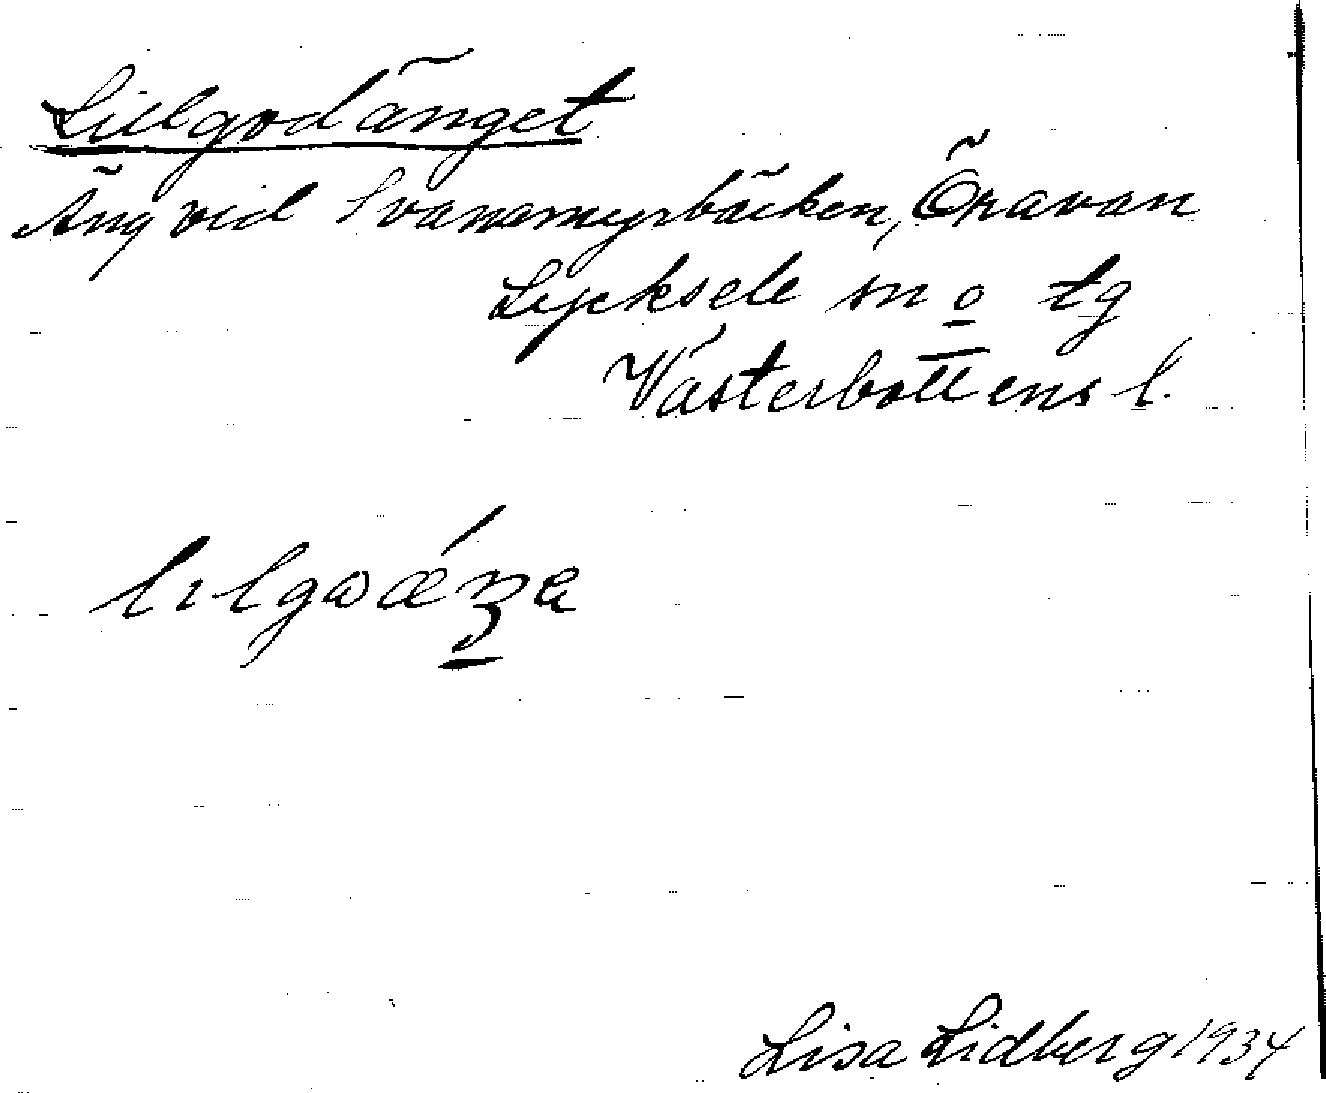 Lillgodänget
Äng vid Svanamyrbäcken, Öravan
Lycksele sn o tg
Västerbottens l.
Lisa Lidberg 1934